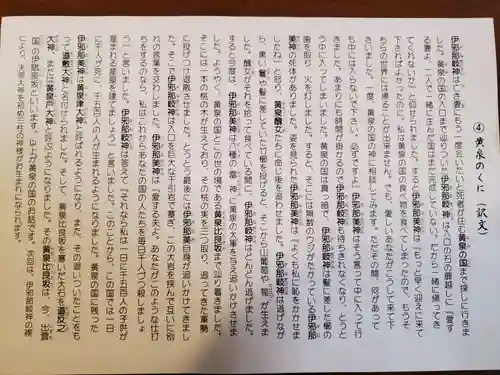 ④ 黄泉のくに (訳文)
伊邪那岐神は亡き妻にもう一度会いたいと死者が住む黄泉の国まで探しに行きま
した。黄泉の国の入口まで辿りついた伊邪那岐神は入口の石の扉越しに『愛す
る妻よ、二人で造ってきた国はまだ完成していない。だから一緒に帰ってき
てくれないか』と仰せられました。すると、伊邪那美神は『もっと早く迎えに来て
下さればよかったのに、私は黄泉の国の食べ物を食べてしまったので、もうそ
ちらの世界には還ることが出来ません。でも、愛しいあなたがこうして来て下
さいました。一度、黄泉の国の神に相談してみます。ただその間、何があって
も中には入らないで下さい、必ずですよ』伊邪那美神はそう言って中に入って行
きました。あまりにも時間が掛かるので伊邪那岐神も待ちきれなくなり、とうと
う中に入ってしまいました。黄泉の国は真っ暗で、伊邪那岐神は髪に差した櫛の
歯を取り、火を灯しました。すると、そこには無数のウジがたかっている伊邪那
美神の死体がありました。姿を見られた伊邪那美神は『よくも私に恥をかかせま
したね』と怒り、黄泉醜女たちに命じ後を追わせました。伊邪那岐神は逃げなが
ら、黒い鬘や髪に差していた竹櫛を投げると、そこから山葡萄や、筍が生えま
した。醜女がそれを拾って食べている間に、伊邪那岐神はどんどん逃げました。
すると今度は、伊邪那美神は八種の雷神に黄泉の大軍を与え追いかけさせま
した。ようやく、黄泉の国とこの世の境である黄泉比良坂まで辿り着きました。
そこには一本の桃の木が生えており、その桃の実を三つ取り、追ってきた軍勢
に投げつけ退散させました。とうとう最後には伊邪那美神自身が追いかけてきまし
た。そこで伊邪那岐神は入口を巨大な千引岩で塞ぎ、この大岩を挟んで互いに別
れの言葉を交わしました。伊邪那美神は『愛する夫よ、あなたがこのような仕打
ちをするのなら、私はこれからあなたの国の人たちを毎日千人づつ殺しましょ
う』と言いました。伊邪那岐神は答えて『それなら私は一日に千五百人の子供が
産まれる産屋を建てましょう』と言いました。このことから、この国では一日
に千人が死に、千五百人の人が生まれるようになりました。黄泉の国に残った
伊邪那美神は黄泉津大神と呼ばれるようになり、また、その追いついたことをも
って道敷大神と名付けられました。そして、黄泉比良坂を塞いだ大石を道反之
大神、または黄泉戸大神と呼ぶようになりました。その黄泉比良坂は、今、出雲
国の伊賦夜坂といいます。以上が黄泉の国のお話です。次回は、伊邪那岐神の禊
により、天照大神を初め三柱の神様がお生まれになられます。